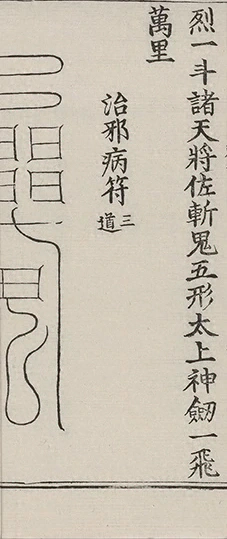 烈一斗諸天將佐斬鬼五形太上神劒一飛
萬里
治邪病符三道